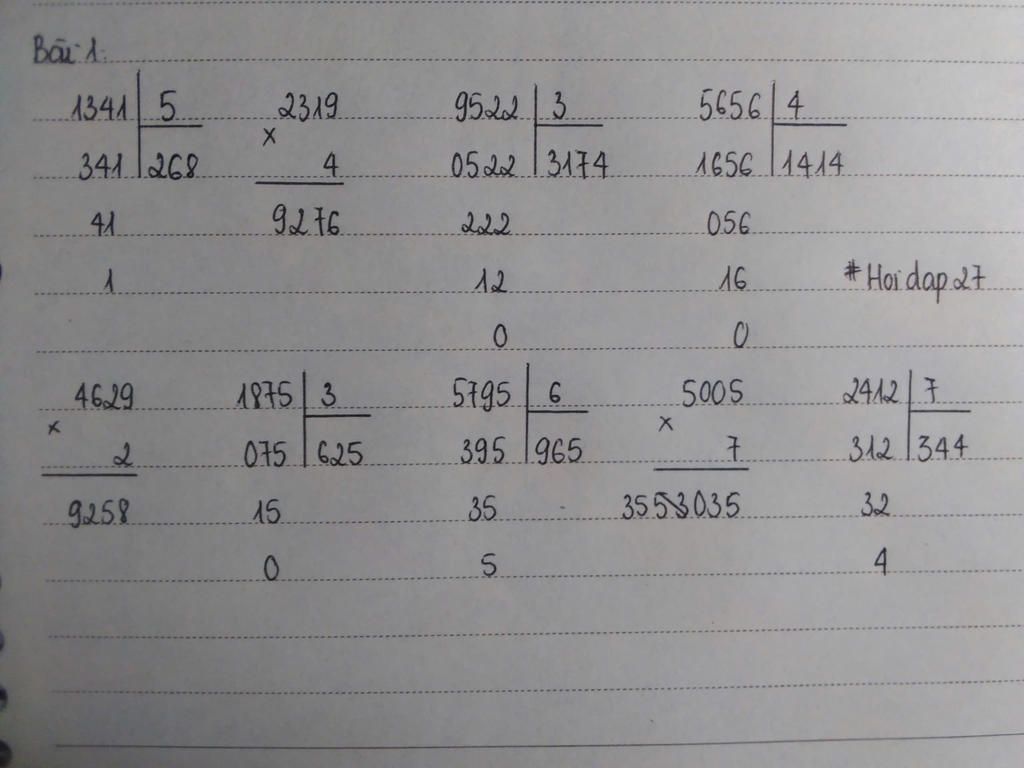 Bài 1:
1341 5 2319 9522 3 5656 4
x
341 268 4 0522 3174 1656 1414
41 9276 222 056
1 12 16 #Hoidap27
0 0
4629 1875 3 5795 6 5005 2412 7
x x
2 075 625 395 965 7 312 344
9258 15 35 35035 32
0 5 4